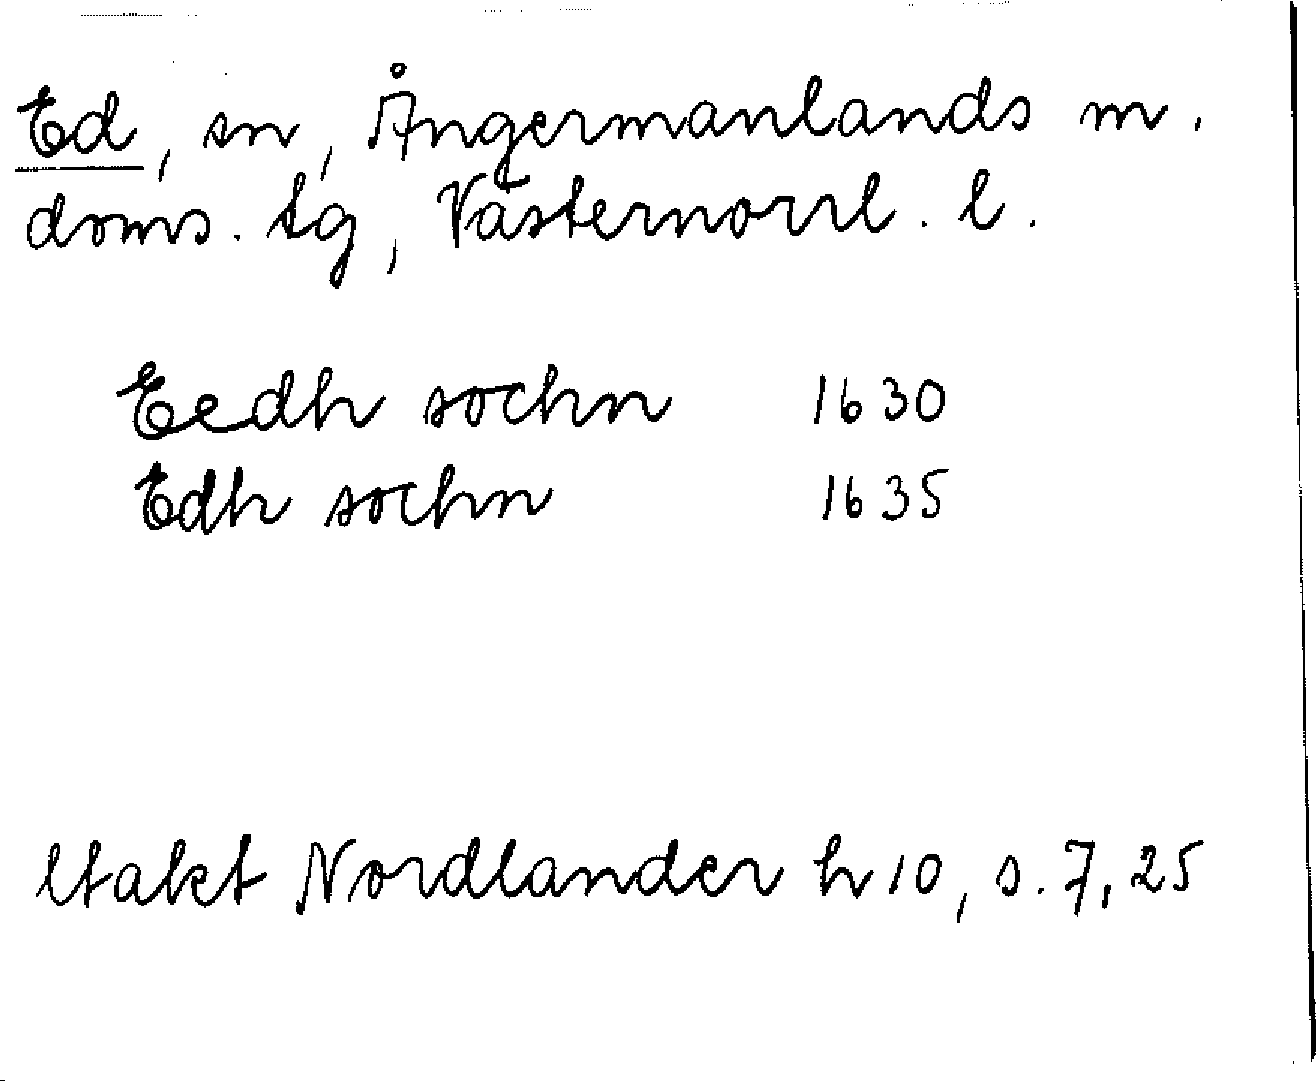 Ed, sn, Ångermanlands m.
doms. tg, Västernorrl. l.
Eedh sochn 1630
Edh sochn 1635
Utakt Nordlander h 10, s. 7, 25